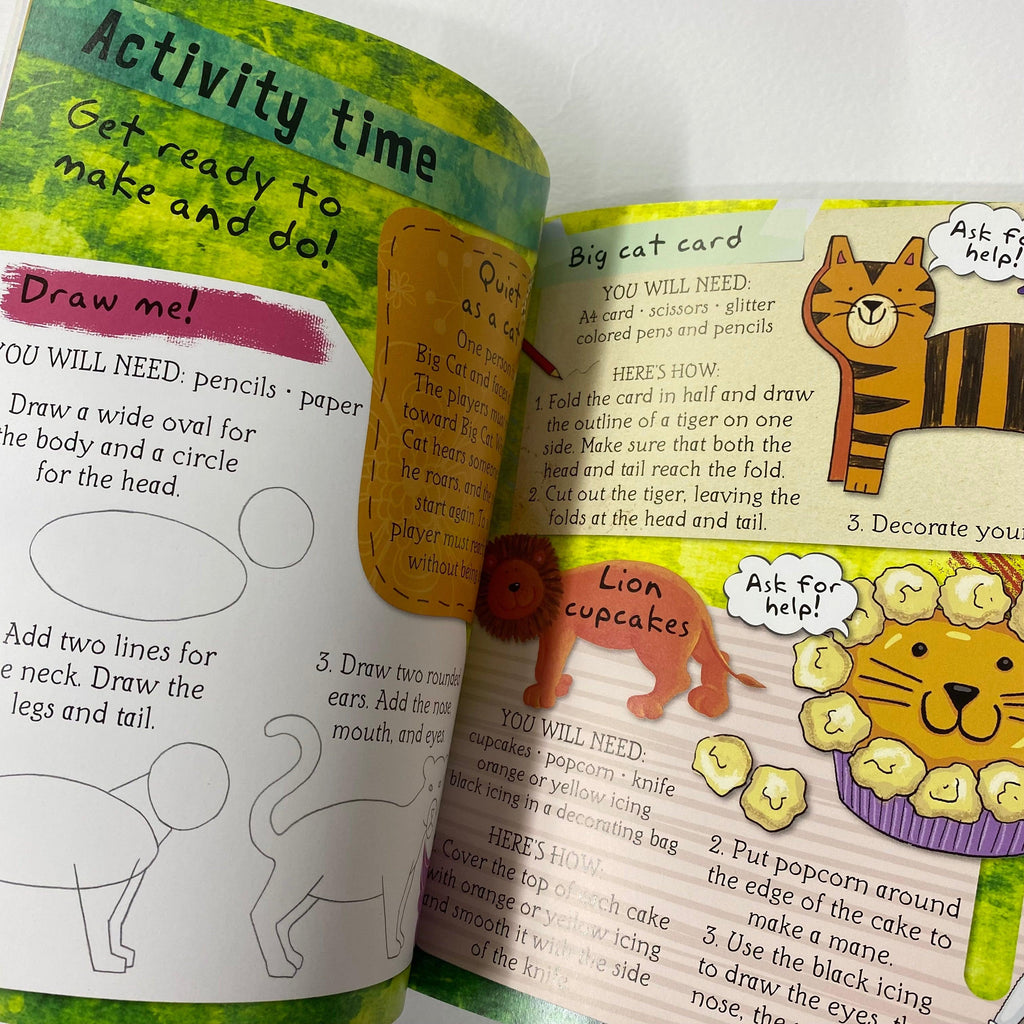 Activity time
Get ready to
make and do!
Draw me!
YOU WILL NEED: pencils • paper
Draw a wide oval for
the body and a circle
for the head.
Add two lines for
neck. Draw the
legs and tail.
3. Draw two rounded
ears. Add the nose
mouth, and eyes
Quiet
as a cat
One person
Big Cat and faces
The players must
toward Big Cat.
Cat hears
he roars, and the
start again. To
player must
without being
Big cat card
Ask for
help!
YOU WILL NEED:
A4 card • scissors • glitter
colored pens and pencils
HERE'S HOW:
1. Fold the card in half and draw
the outline of a tiger on one
side. Make sure that both the
head and tail reach the fold.
2. Cut out the tiger, leaving the
folds at the head and tail.
3. Decorate your
Lion
cupcakes
Ask for
help!
YOU WILL NEED:
cupcakes • popcorn • knife
orange or yellow icing
black icing in a decorating bag
HERE'S HOW:
Cover the top of each cake
with orange or yellow icing
and smooth it with the side
of the knife
2. Put popcorn around
the edge of the cake to
make a mane.
3. Use the black icing
to draw the eyes,
nose, the